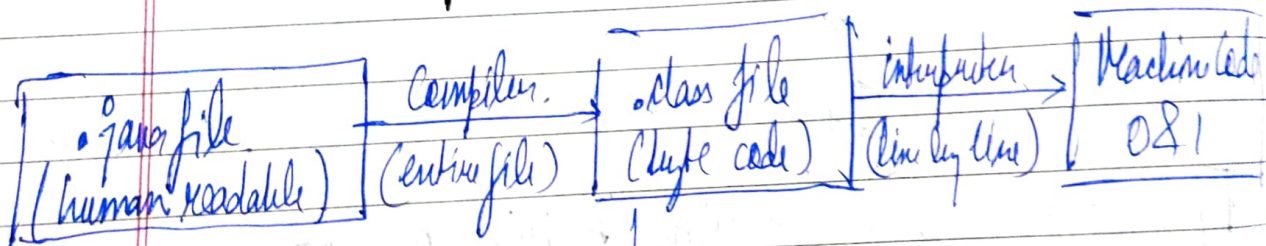 .java file
(human readable)
Compiler.
(entire file)
.class file
(byte code)
interpreter
(line by line)
Machine Code
0&1